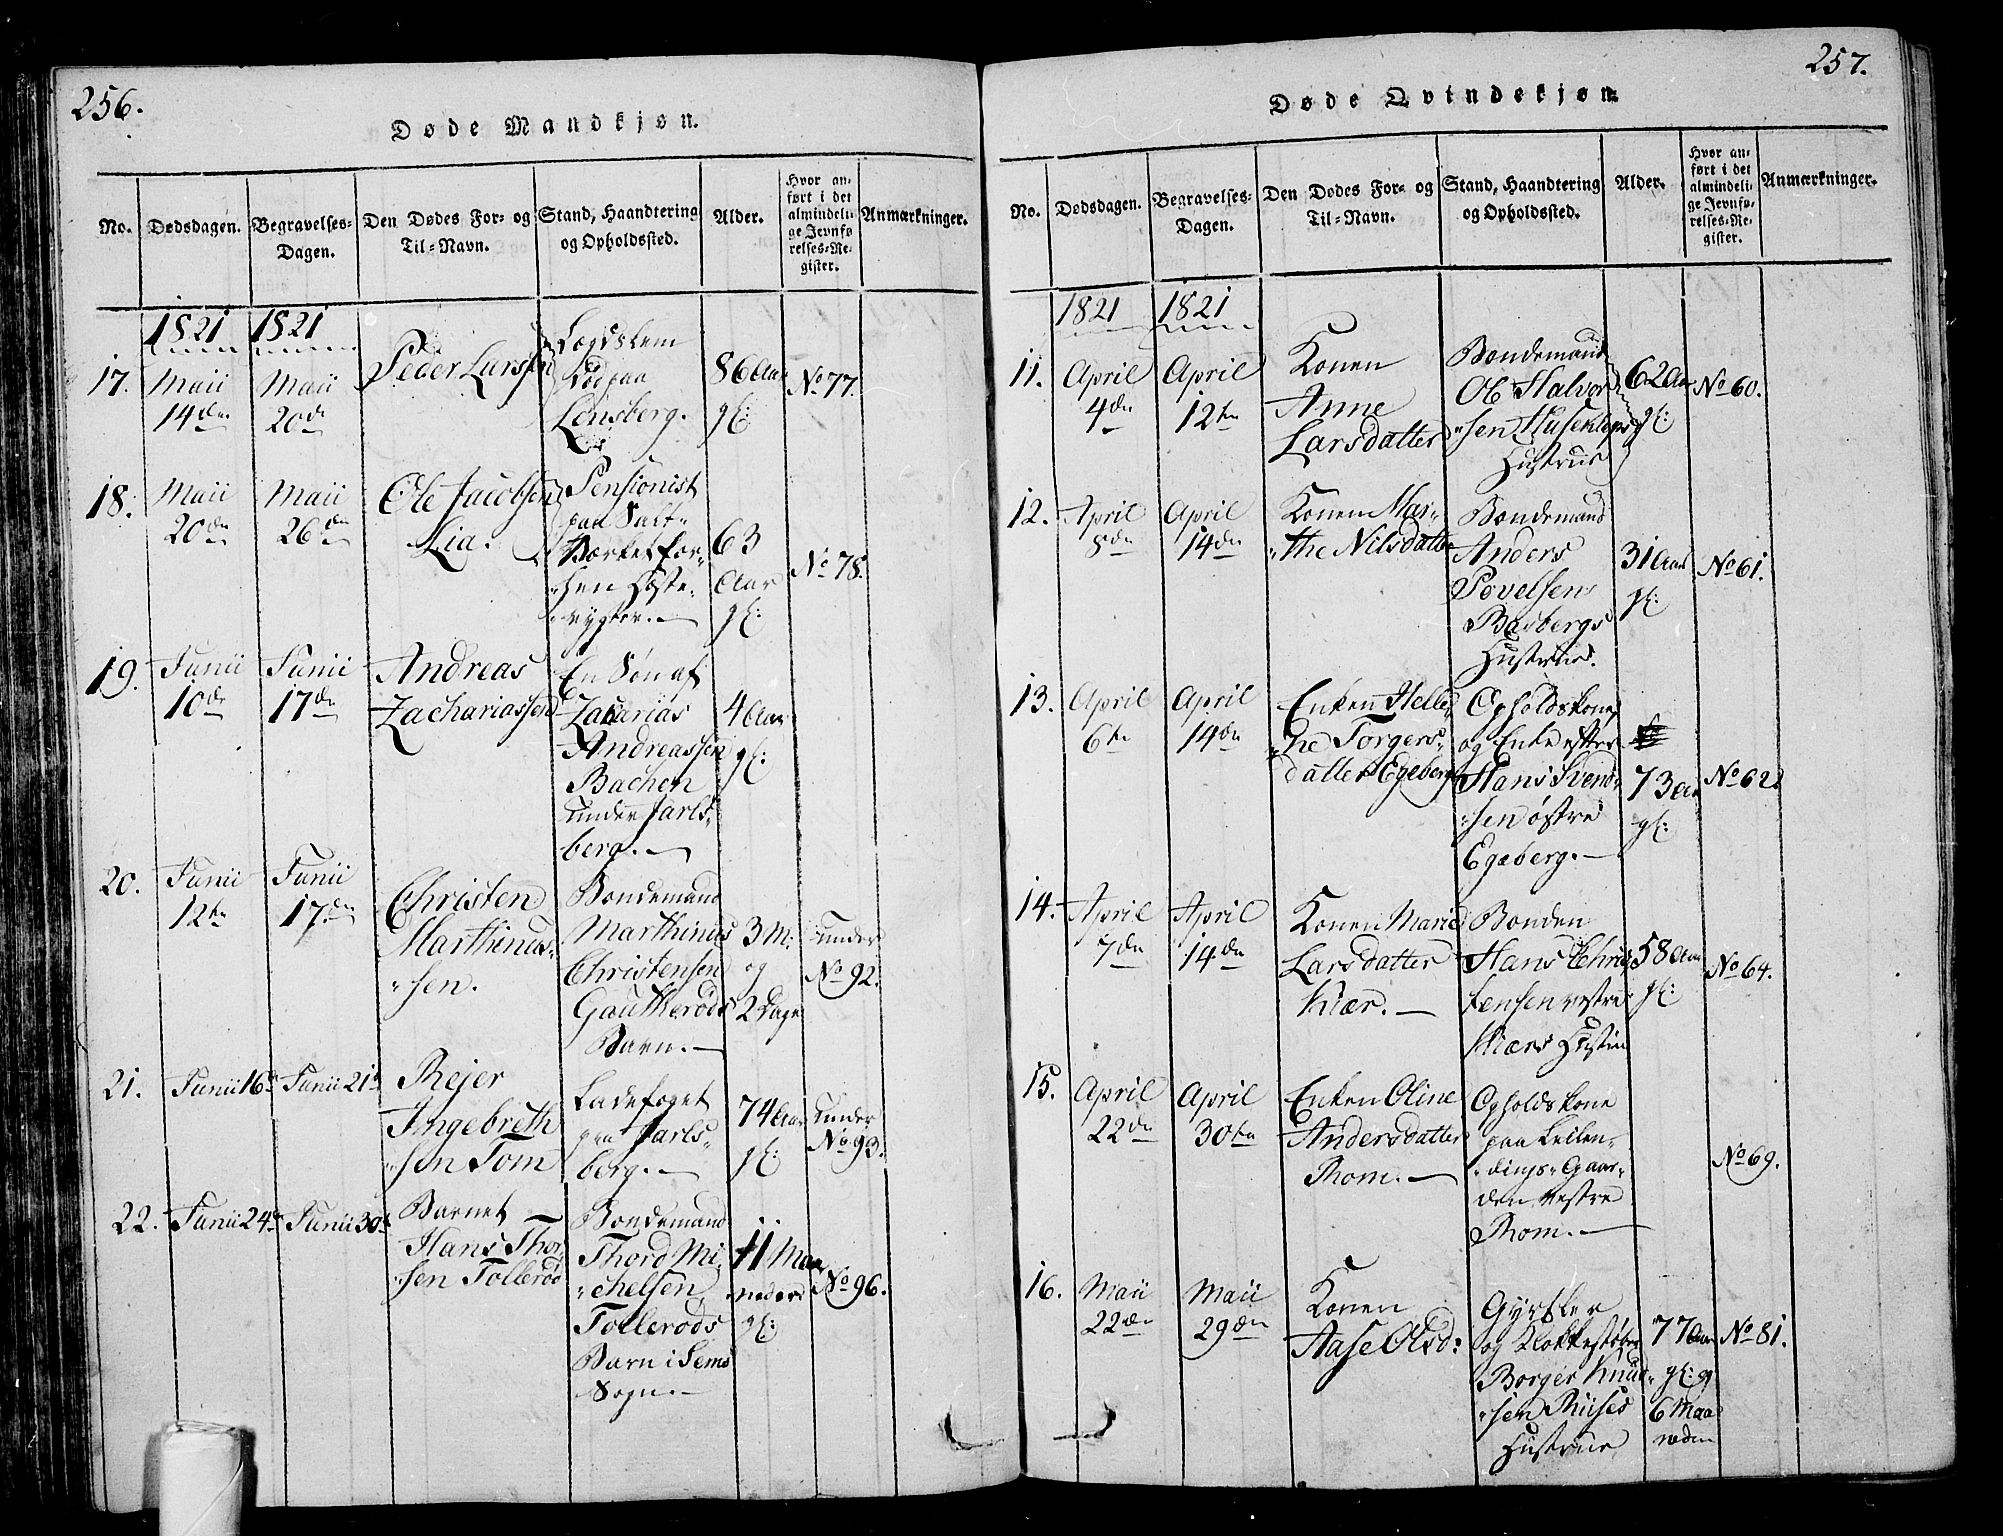 256.
Døde Mandkjøn.
No.
Dødsdagen.
Begravelses-
Dagen.
Den Dødes For- og
Til-Navn.
Stand, Haandtering
og Opholdssted.
Alder.
Hvor an-
ført i det
almindeli-
ge Jevnfø-
relses-Re-
gister.
Anmærkninger.
1821 1821
17.
Maii
14de
Maii
20de
Peder Larssen
Lægdslem
død paa
Lensberg.
86 Aar
gl:
No 77.
18.
Maii
20de
Maii
26de
Ole Jacobsen
Lia.
Pensionist
paa Salt-
Værket for-
63
Aar
gl:
No 78.
19.
Junii
10de
Junii
17de
Andreas
Zachariassen
En Søn af
Zakarias
Andreassen
Bachen
under Jarls-
berg.
4 Aar
gl:
20.
Junii
12te
Junii
17de
Christen
Marthinus-
sen.
Bondemand
Marthinus
Christensen
Gautherøds
Barn.
3 M:
og
2 Dage
under
No 92.
21.
Junii 16de
Junii 21de
Rejer
Ingebreth-
sen Tom
Ladefoget
paa Jarls-
berg.
74 Aar
gl:
under
No 93.
22.
Junii 24de
Junii 30te
Barnet
Hans Thor-
sen Tollerød
Bondemand
Thord Mi-
chelsen
Tollerøds
Barn i Sems
Sogn.
11 Maa-
neder
gl:
No 96.
257.
Døde Qvindekjøn.
No.
Dødsdagen.
Begravelses-
Dagen.
Den Dødes For- og
Til-Navn.
Stand, Haandtering
og Opholdssted.
Alder.
Hvor an-
ført i det
almindeli-
ge Jevnfø-
relses-Re-
gister.
Anmærkninger.
1821 1821
11.
April
4de
April
12te
Konen
Anne
Larsdatter
Bondemand
Ole Halvor-
sen Huseklops
Hustrue
62 Aar
gl:
No 60.
12.
April
8de
April
14de
Konen Mar-
the Nilsdatter
Bondemand
Anders
Povelsen
Basbergs
Hustrue.
31 Aar
gl:
No 61.
13.
April
6te
April
14de
Enken Helle-
ne Torgers-
datter Egeberg
Opholdskone
og Enke efter
Hans Svend-
sen østre
Egeberg.
73 Aar
gl:
No 62
14.
April
7de
April
14de
Konen Marie
Larsdatter
Kiær.
Bonden
Hans Chris-
tensen vestre
Kiærs Hustrue
58 Aar
gl:
No 64.
15.
April
22de
April
30te
Enken Oline
Andersdatter
Rom.
Opholdskone
paa Leilen-
dings-Gaar-
den vestre
Rom.
No 69.
16.
Maii
22de
Maii
29de
Konen
Aase Olsd:
Gyrtler
og Klokkestøber
Borger Knud-
sen Riises
Hustrue
77 Aar
gl: og
6 Maa-
neder
No 81.